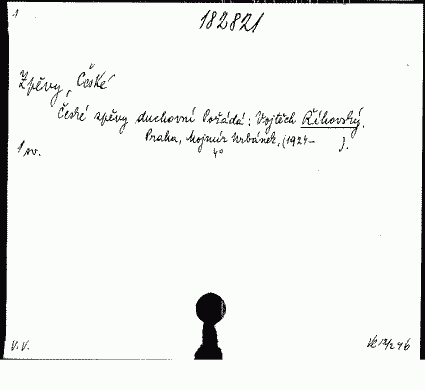 1
182821
Zpěvy, České
České zpěvy duchovní Pořádá: Vojtěch Říhovský.
Praha, Mojmír Urbánek, (1924- ).
4°
1 sv.
V. V.